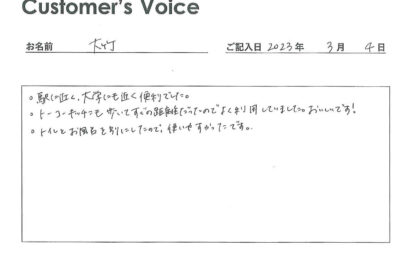 Customer's Voice
お名前 大竹 ご記入日 2023年 3月 4日
○駅に近く、大学にも近く便利でした。
○トーコーキッチンも歩いてすぐの距離だったのでよく利用していました。おいしいです!
○トイレとお風呂を別にしたので、使いやすかったです。